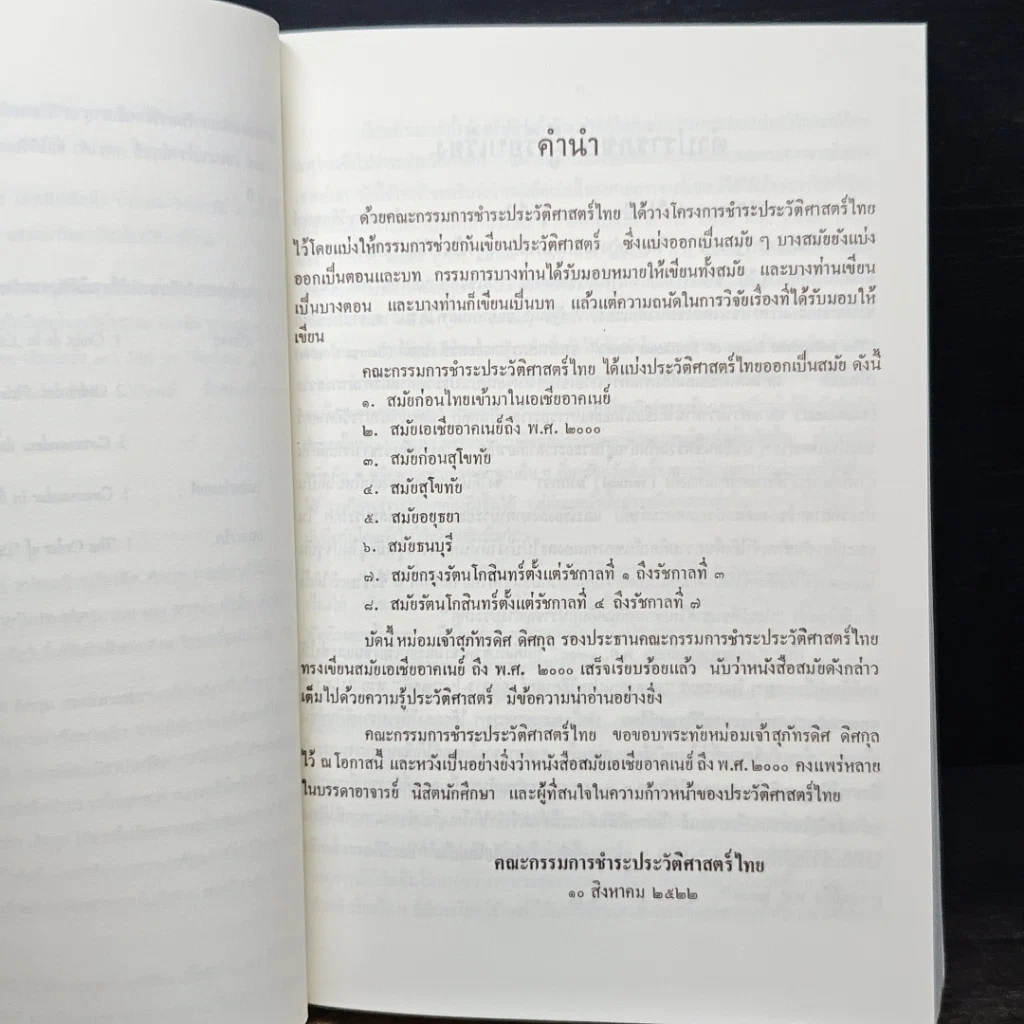 คำนำ
ด้วยคณะกรรมการชำระประวัติศาสตร์ไทย ได้วางโครงการชำระประวัติศาสตร์ไทย
ไว้โดยแบ่งให้กรรมการช่วยกันเขียนประวัติศาสตร์ ซึ่งแบ่งออกเป็นสมัย ๆ บางสมัยยังแบ่ง
ออกเป็นตอนและบท กรรมการบางท่านได้รับมอบหมายให้เขียนทั้งสมัย และบางท่านเขียน
เป็นบางตอน และบางท่านก็เขียนเป็นบท แล้วแต่ความถนัดในการวิจัยเรื่องที่ได้รับมอบให้
เขียน
คณะกรรมการชำระประวัติศาสตร์ไทย ได้แบ่งประวัติศาสตร์ไทยออกเป็นสมัย ดังนี้
๑. สมัยก่อนไทยเข้ามาในเอเซียอาคเนย์
๒. สมัยเอเซียอาคเนย์ถึง พ.ศ. ๒๐๐๐
๓. สมัยก่อนสุโขทัย
๔. สมัยสุโขทัย
๕. สมัยอยุธยา
๖. สมัยธนบุรี
๗. สมัยกรุงรัตนโกสินทร์ตั้งแต่รัชกาลที่ ๑ ถึงรัชกาลที่ ๓
๘. สมัยรัตนโกสินทร์ตั้งแต่รัชกาลที่ ๔ ถึงรัชกาลที่ ๗
บัดนี้ หม่อมเจ้าสุภัทรดิศ ดิศกุล รองประธานคณะกรรมการชำระประวัติศาสตร์ไทย
ทรงเขียนสมัยเอเซียอาคเนย์ ถึง พ.ศ. ๒๐๐๐ เสร็จเรียบร้อยแล้ว นับว่าหนังสือสมัยดังกล่าว
เต็มไปด้วยความรู้ประวัติศาสตร์ มีข้อความน่าอ่านอย่างยิ่ง
คณะกรรมการชำระประวัติศาสตร์ไทย ขอขอบพระทัยหม่อมเจ้าสุภัทรดิศ ดิศกุล
ไว้ ณ โอกาสนี้ และหวังเป็นอย่างยิ่งว่าหนังสือสมัยเอเซียอาคเนย์ ถึง พ.ศ. ๒๐๐๐ คงแพร่หลาย
ในบรรดาอาจารย์ นิสิตนักศึกษา และผู้ที่สนใจในความก้าวหน้าของประวัติศาสตร์ไทย
คณะกรรมการชำระประวัติศาสตร์ไทย
๑๐ สิงหาคม ๒๕๒๒